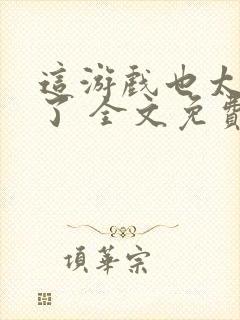 這游戲也太
了 全文免費
項華宗